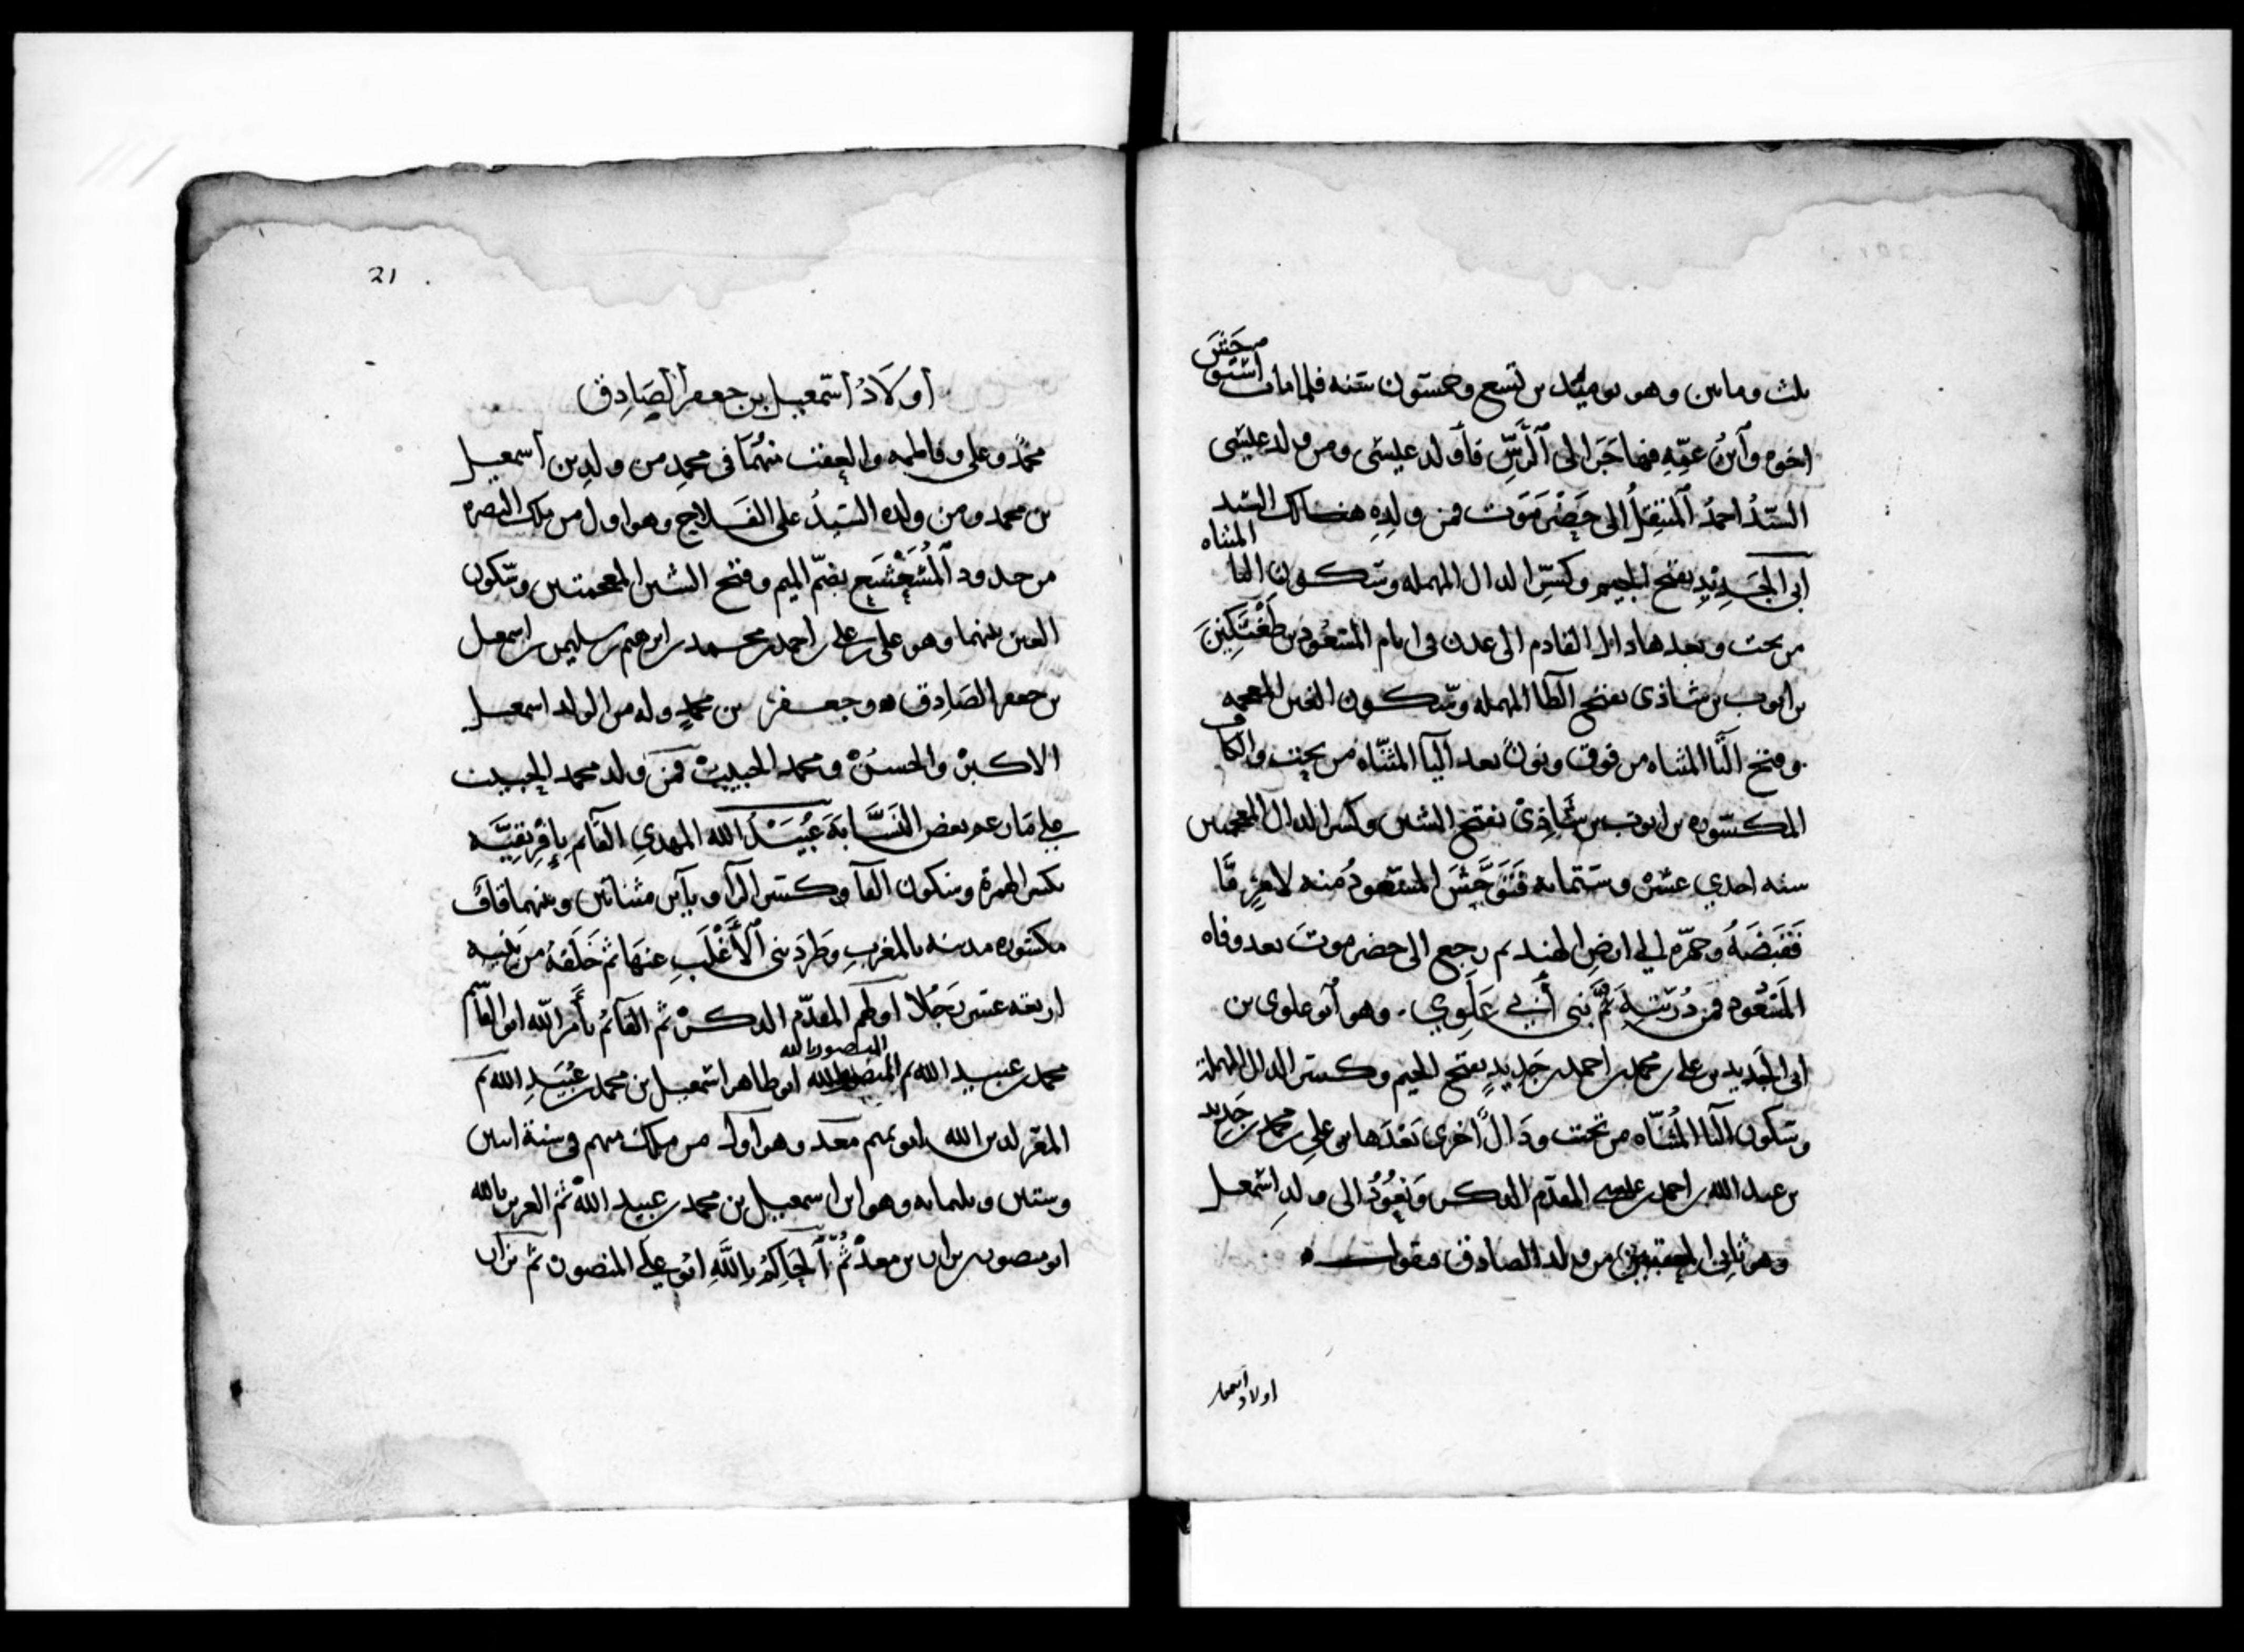 ثلث وماتين وهو يوميذ بن تسع وخمسون سنه فلما مات استوحش
اخوه وابن عمه فهاجرا الى الرس فاولد عيسى ومن ولد عيسى
السيد احمد المنتقل الى حضرموت فمن ولده هنالك السيد
ابى الجديد بفتح الجيم وكسر الدال المهمله وسكون اليا المثناه
من تحت وبعدها دال القادم الى عدن في ايام المسعود بن طغتكين
بن ايوب بن شاذى بفتح الطا المهمله وسكون الغين المعجمه
وفتح التا المثناه من فوق ونون بعد اليا المثناه من تحت والكاف
المكسوره بن ايوب بن شاذي بفتح الشين وكسر الدال المعجمتين
سنه احدي عشر وستمايه فتوحش المسعود منه لامر ما
فقبضه وجهزه الي ارض الهند ثم رجع الى حضرموت بعد وفاه
المسعود فمن ذريته ثم بنى أبي علوي وهو ابو علوى بن
ابى الجديد بن علي بن محمد بن احمد بن جديد بفتح الجيم وكسر الدال المهملة
وسكون اليا المثناه من تحت ودال اخرى بعدها بن علي بن محمد بن جديد
بن عبد الله بن احمد بن عيسى المقدم الذكر ونعود الى ولد اسمعيل
وهو ثاني المعقبين من ولد الصادق فنقول
اولاد اسمعيل
21
أولاد اسمعيل بن جعفر الصادق
محمد وعلى وفاطمه والعقب منهما فى محمد من ولد بن اسمعيل
بن محمد ومن ولده السيد على الفلاج وهو اول من ملك البصره
من حدود المشعشع بضم الميم وفتح الشين المعجمتين وسكون
العين بينهما وهو على بن علي بن احمد بن محمد بن ابرهيم بن سليمن بن اسمعيل
بن جعفر الصادق وجعفر بن محمد وله من الولد اسمعيل
الاكبر والحسن ومحمد الحبيب فمن ولد محمد الحبيب
علي ما زعم بعض النسابة عبيد الله المهدي القائم بإفريقية
بكسر الهمزة وسكون الفا وكسر الرا ويآين مثناتين وبينهما قاف
مكسوره مدينه بالمغرب وطرد بنى الأغلب عنها ثم خلفه من بنيه
اربعه عشر رجلا اولهم المقدم الذكر ثم القائم بأمر الله ابو القاسم
محمد بن عبيد الله ثم المنصور بالله ابو طاهر اسمعيل بن محمد بن عبيد الله ثم
المعز لدين الله ابو تميم معد وهو اول من ملك منهم فى سنة اثنين
وستين وثلمايه وهو ابن اسمعيل بن محمد بن عبيد الله ثم العزيز بالله
ابو منصور نزار بن معد ثم الحاكم بالله ابو علي المنصور ثم نزار